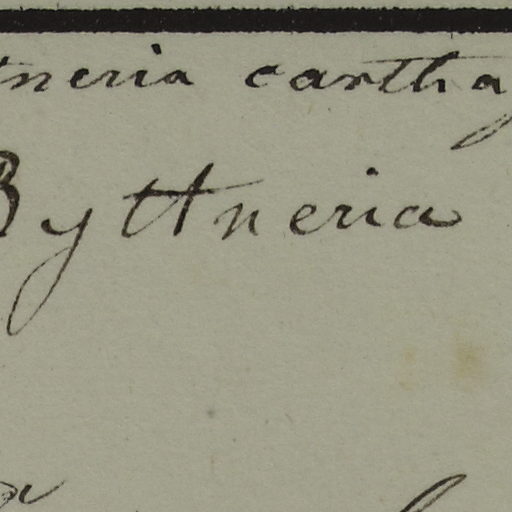 tneria carthag
Byttneria